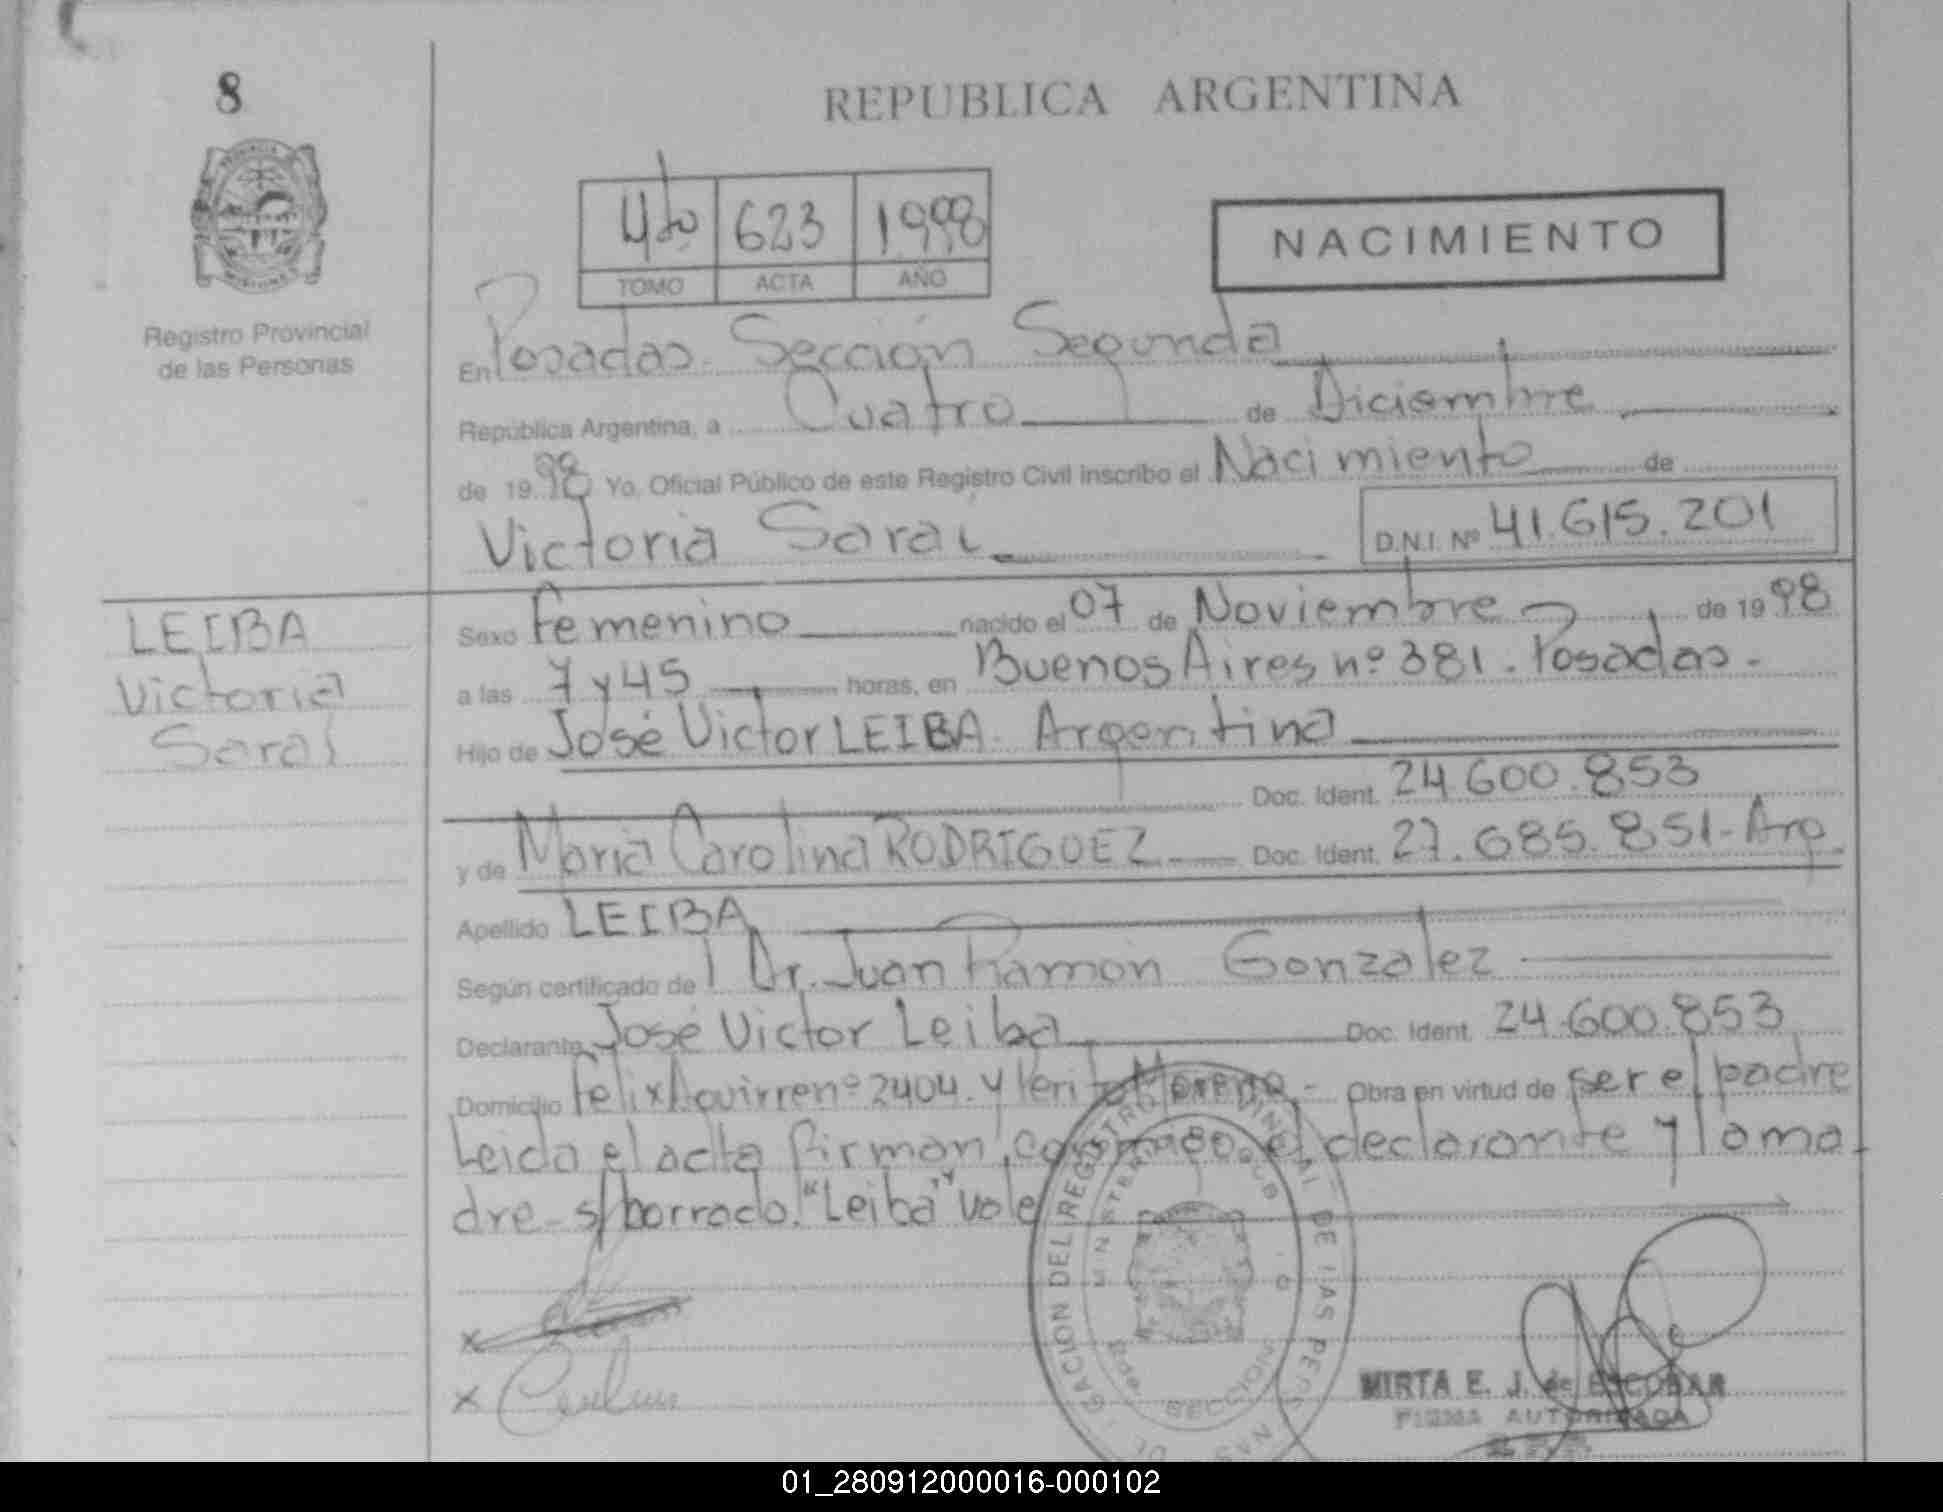 8
REPUBLICA ARGENTINA
4to 623 1998
TOMO ACTA AÑO
NACIMIENTO
Registro Provincial
de las Personas
En Posadas. Sección Segunda
República Argentina, a Cuatro de Diciembre
de 1998 Yo, Oficial Público de este Registro Civil inscribo el Nacimiento de
Victoria Sarai D.N.I. Nº 41.615.201
LEIBA
Victoria
Sarai
Sexo Femenino nacido el 07 de Noviembre de 1998
a las 7 y 45 horas, en Buenos Aires nº 381. Posadas.
Hijo de José Victor LEIBA. Argentina
Doc. Ident. 24.600.853
y de Maria Carolina RODRIGUEZ Doc. Ident. 27.685.851-Arg.
Apellido LEIBA
Según certificado de Dr. Juan Ramon Gonzalez
Declarante José Victor Leiba Doc. Ident. 24.600.853
Domicilio Felix Aguirre nº 2404. y Perito Moreno.- Obra en virtud de ser el padre
Leida el acta firman conmigo el declarante y la ma
dre- s/borrado. "Leiba" vale
x
x
GACION DEL REGISTRO PROVINCIAL DE LAS PERSONAS
SECCION
MIRTA E. J. de ESCOBAR
FIRMA AUTORIZADA
01_280912000016-000102